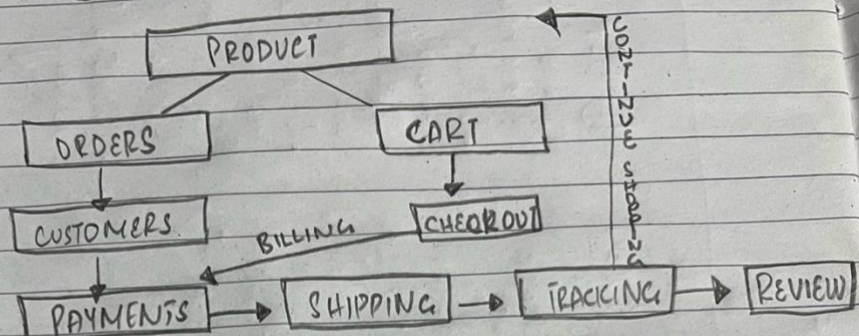 PRODUCT
ORDERS
CART
CUSTOMERS.
CHEQROUT
BILLING
PAYMENTS
SHIPPING
TRACKING
REVIEW
CONTINUE SHOPPING